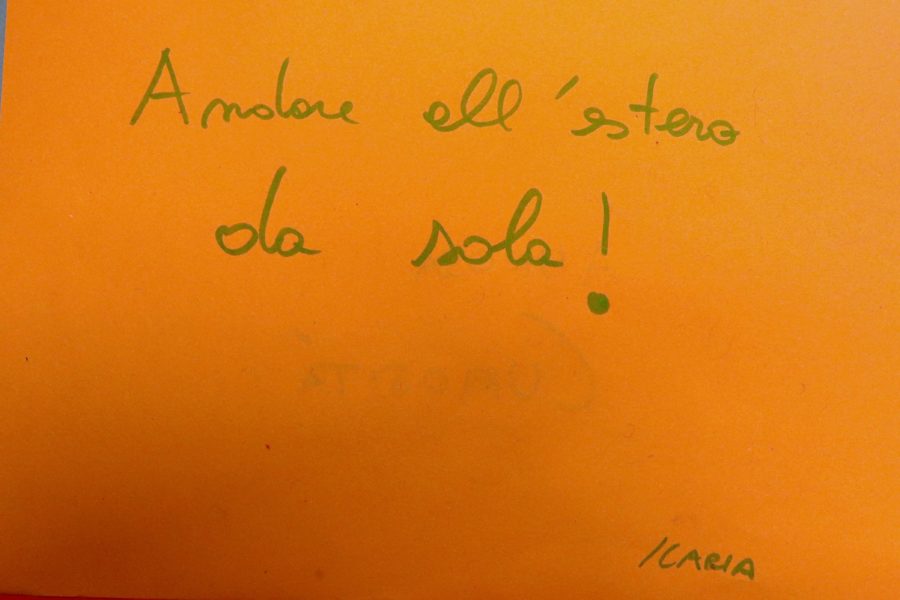 Andare all'estero
da sola!
ICARIA